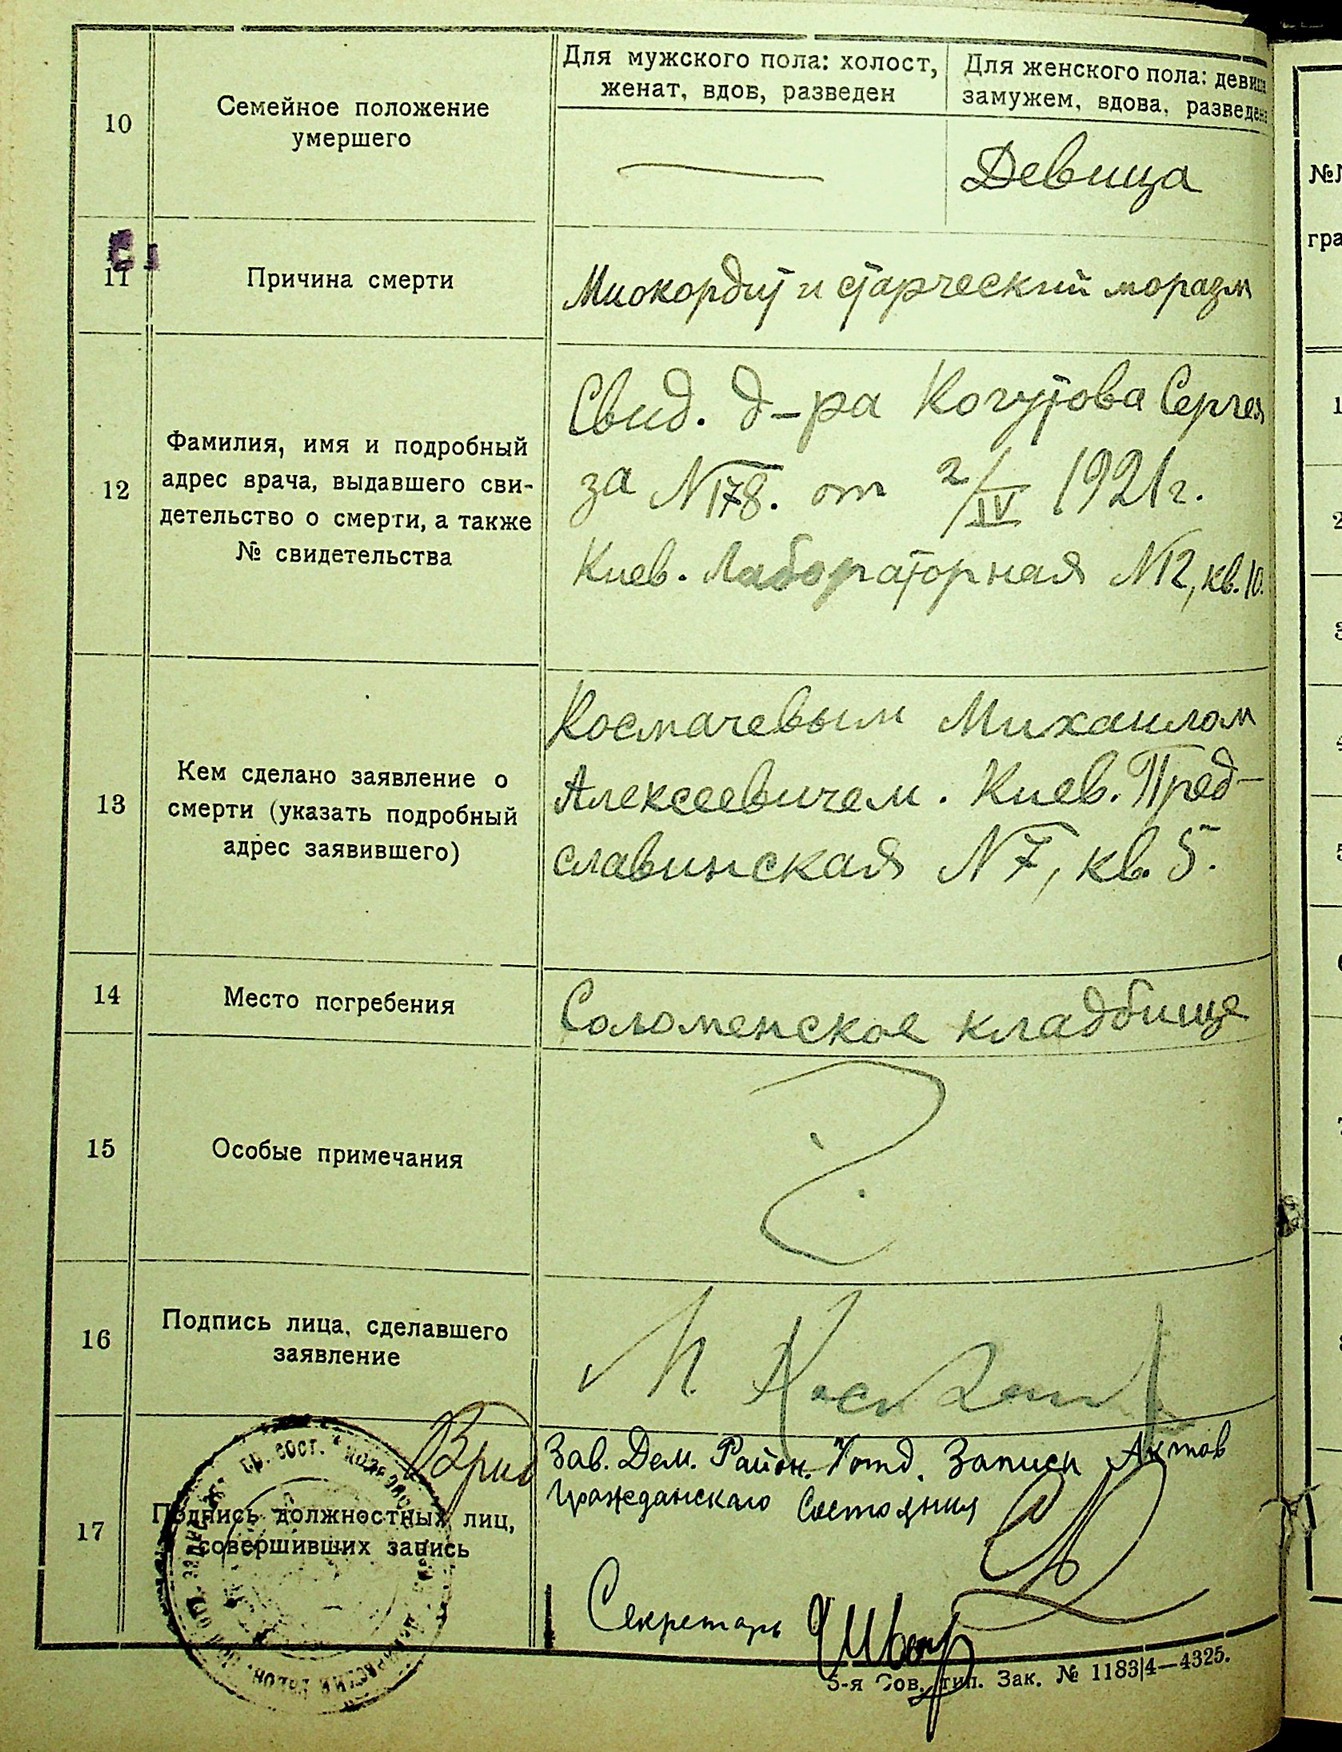 10
Семейное положение
умершего
Для мужского пола: холост,
женат, вдов, разведен
Для женского пола: девица
замужем, вдова, разведена
Девица
11
Причина смерти
Миокордит и старческий моразм
12
Фамилия, имя и подробный
адрес врача, выдавшего сви-
детельство о смерти, а также
№ свидетельства
Свид. д-ра Когутова Сергея
за N178. от 2/IV 1921 г.
Киев. Лабораторная N12, кв. 10.
13
Кем сделано заявление о
смерти (указать подробный
адрес заявившего)
Космачевым Михаилом
Алексеевичем. Киев. Пред-
славинская N7, кв. 5.
14
Место погребения
Соломенское кладбище
15
Особые примечания
16
Подпись лица, сделавшего
заявление
М.
17
Подпись должностных лиц,
совершивших запись
Врид
Зав. Дем. Район. Записи Актов
Гражданского Состояния
Секретарь
5-я Сов. тип. Зак. № 1183|4—4325.